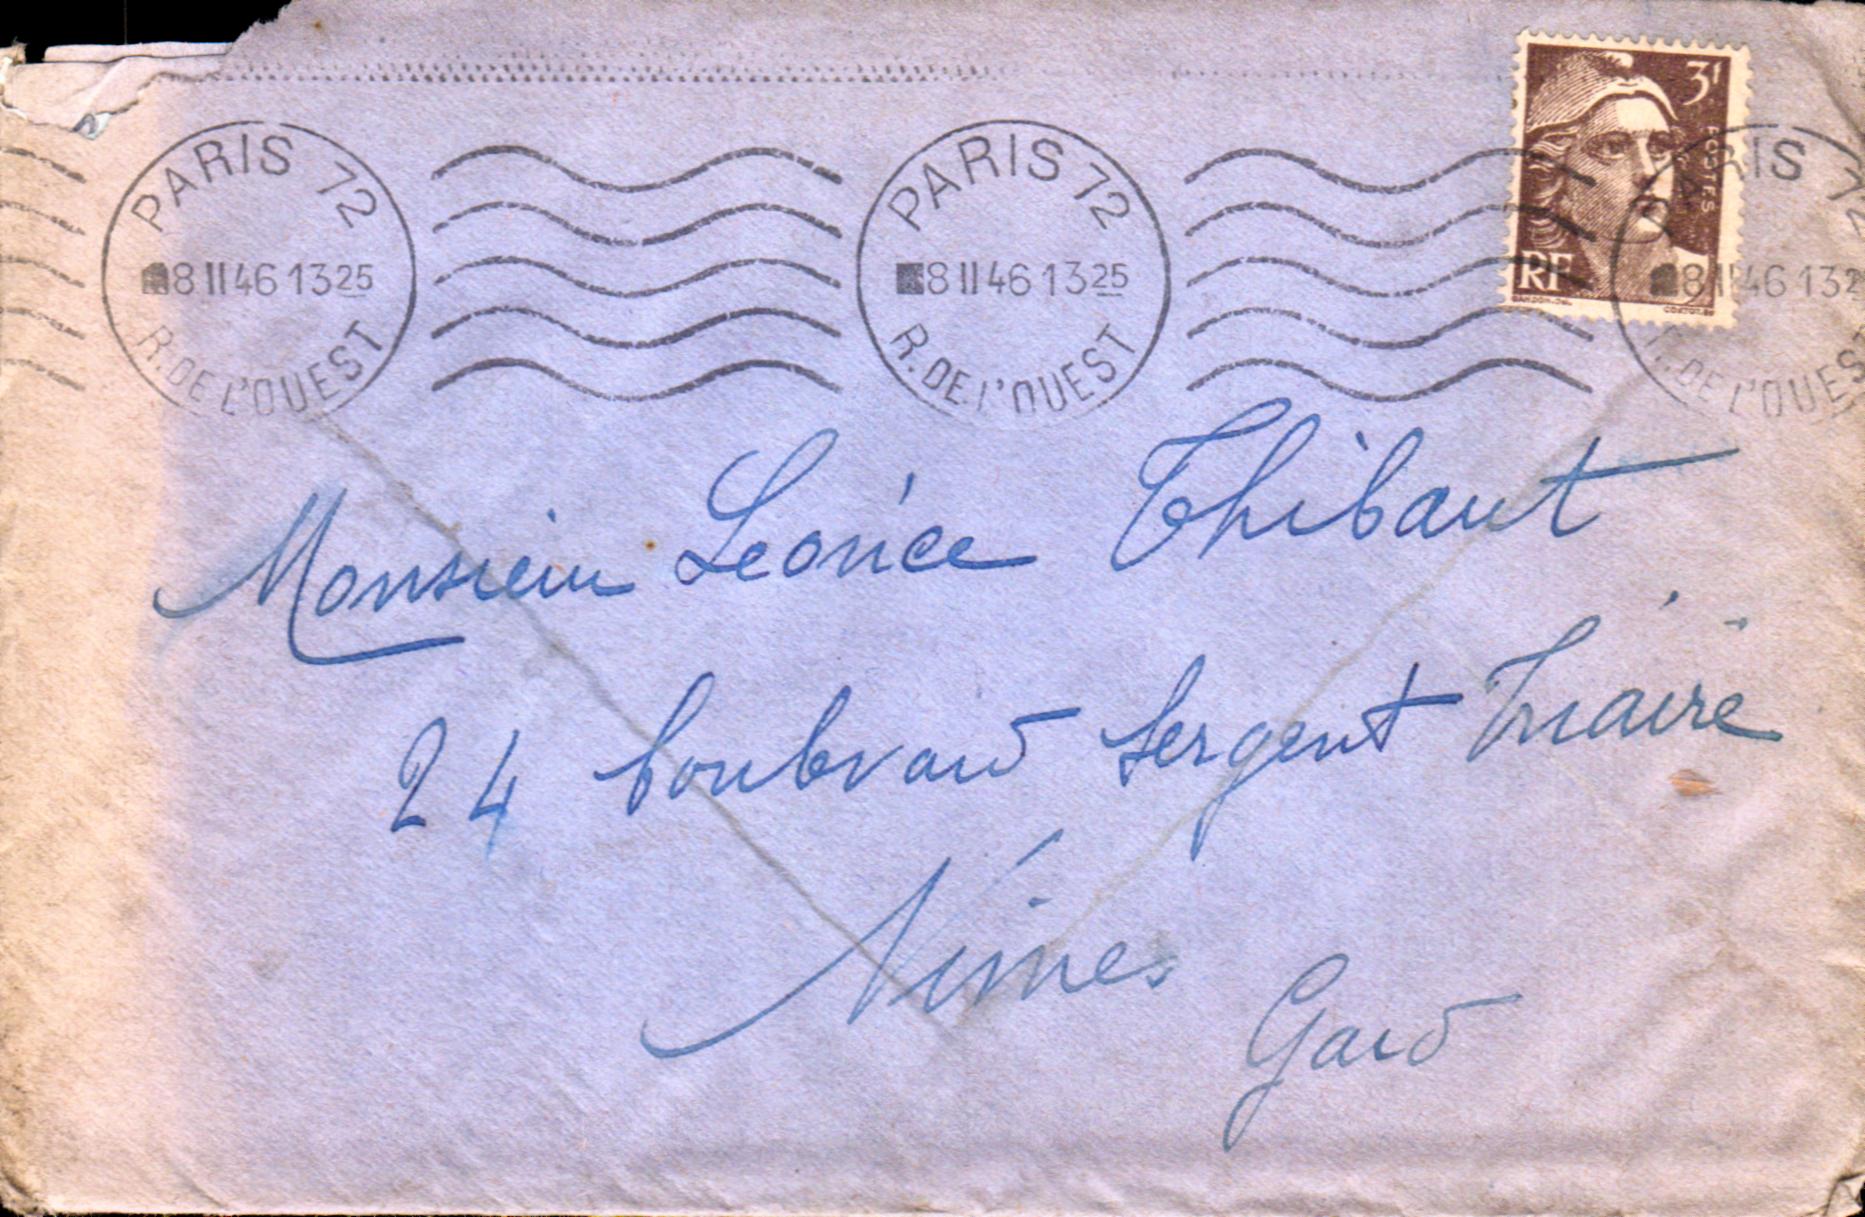 PARIS 72
8 II 46 13 25
R. DE L'OUEST
PARIS 72
8 II 46 13 25
R. DE L'OUEST
3f
POSTES
RF
RIS 72
8 II 46 13 2
R. DE L'OUEST
Monsieur Léonce Thibaut
24 boulevard Sergent Triaire
Nimes
Gard